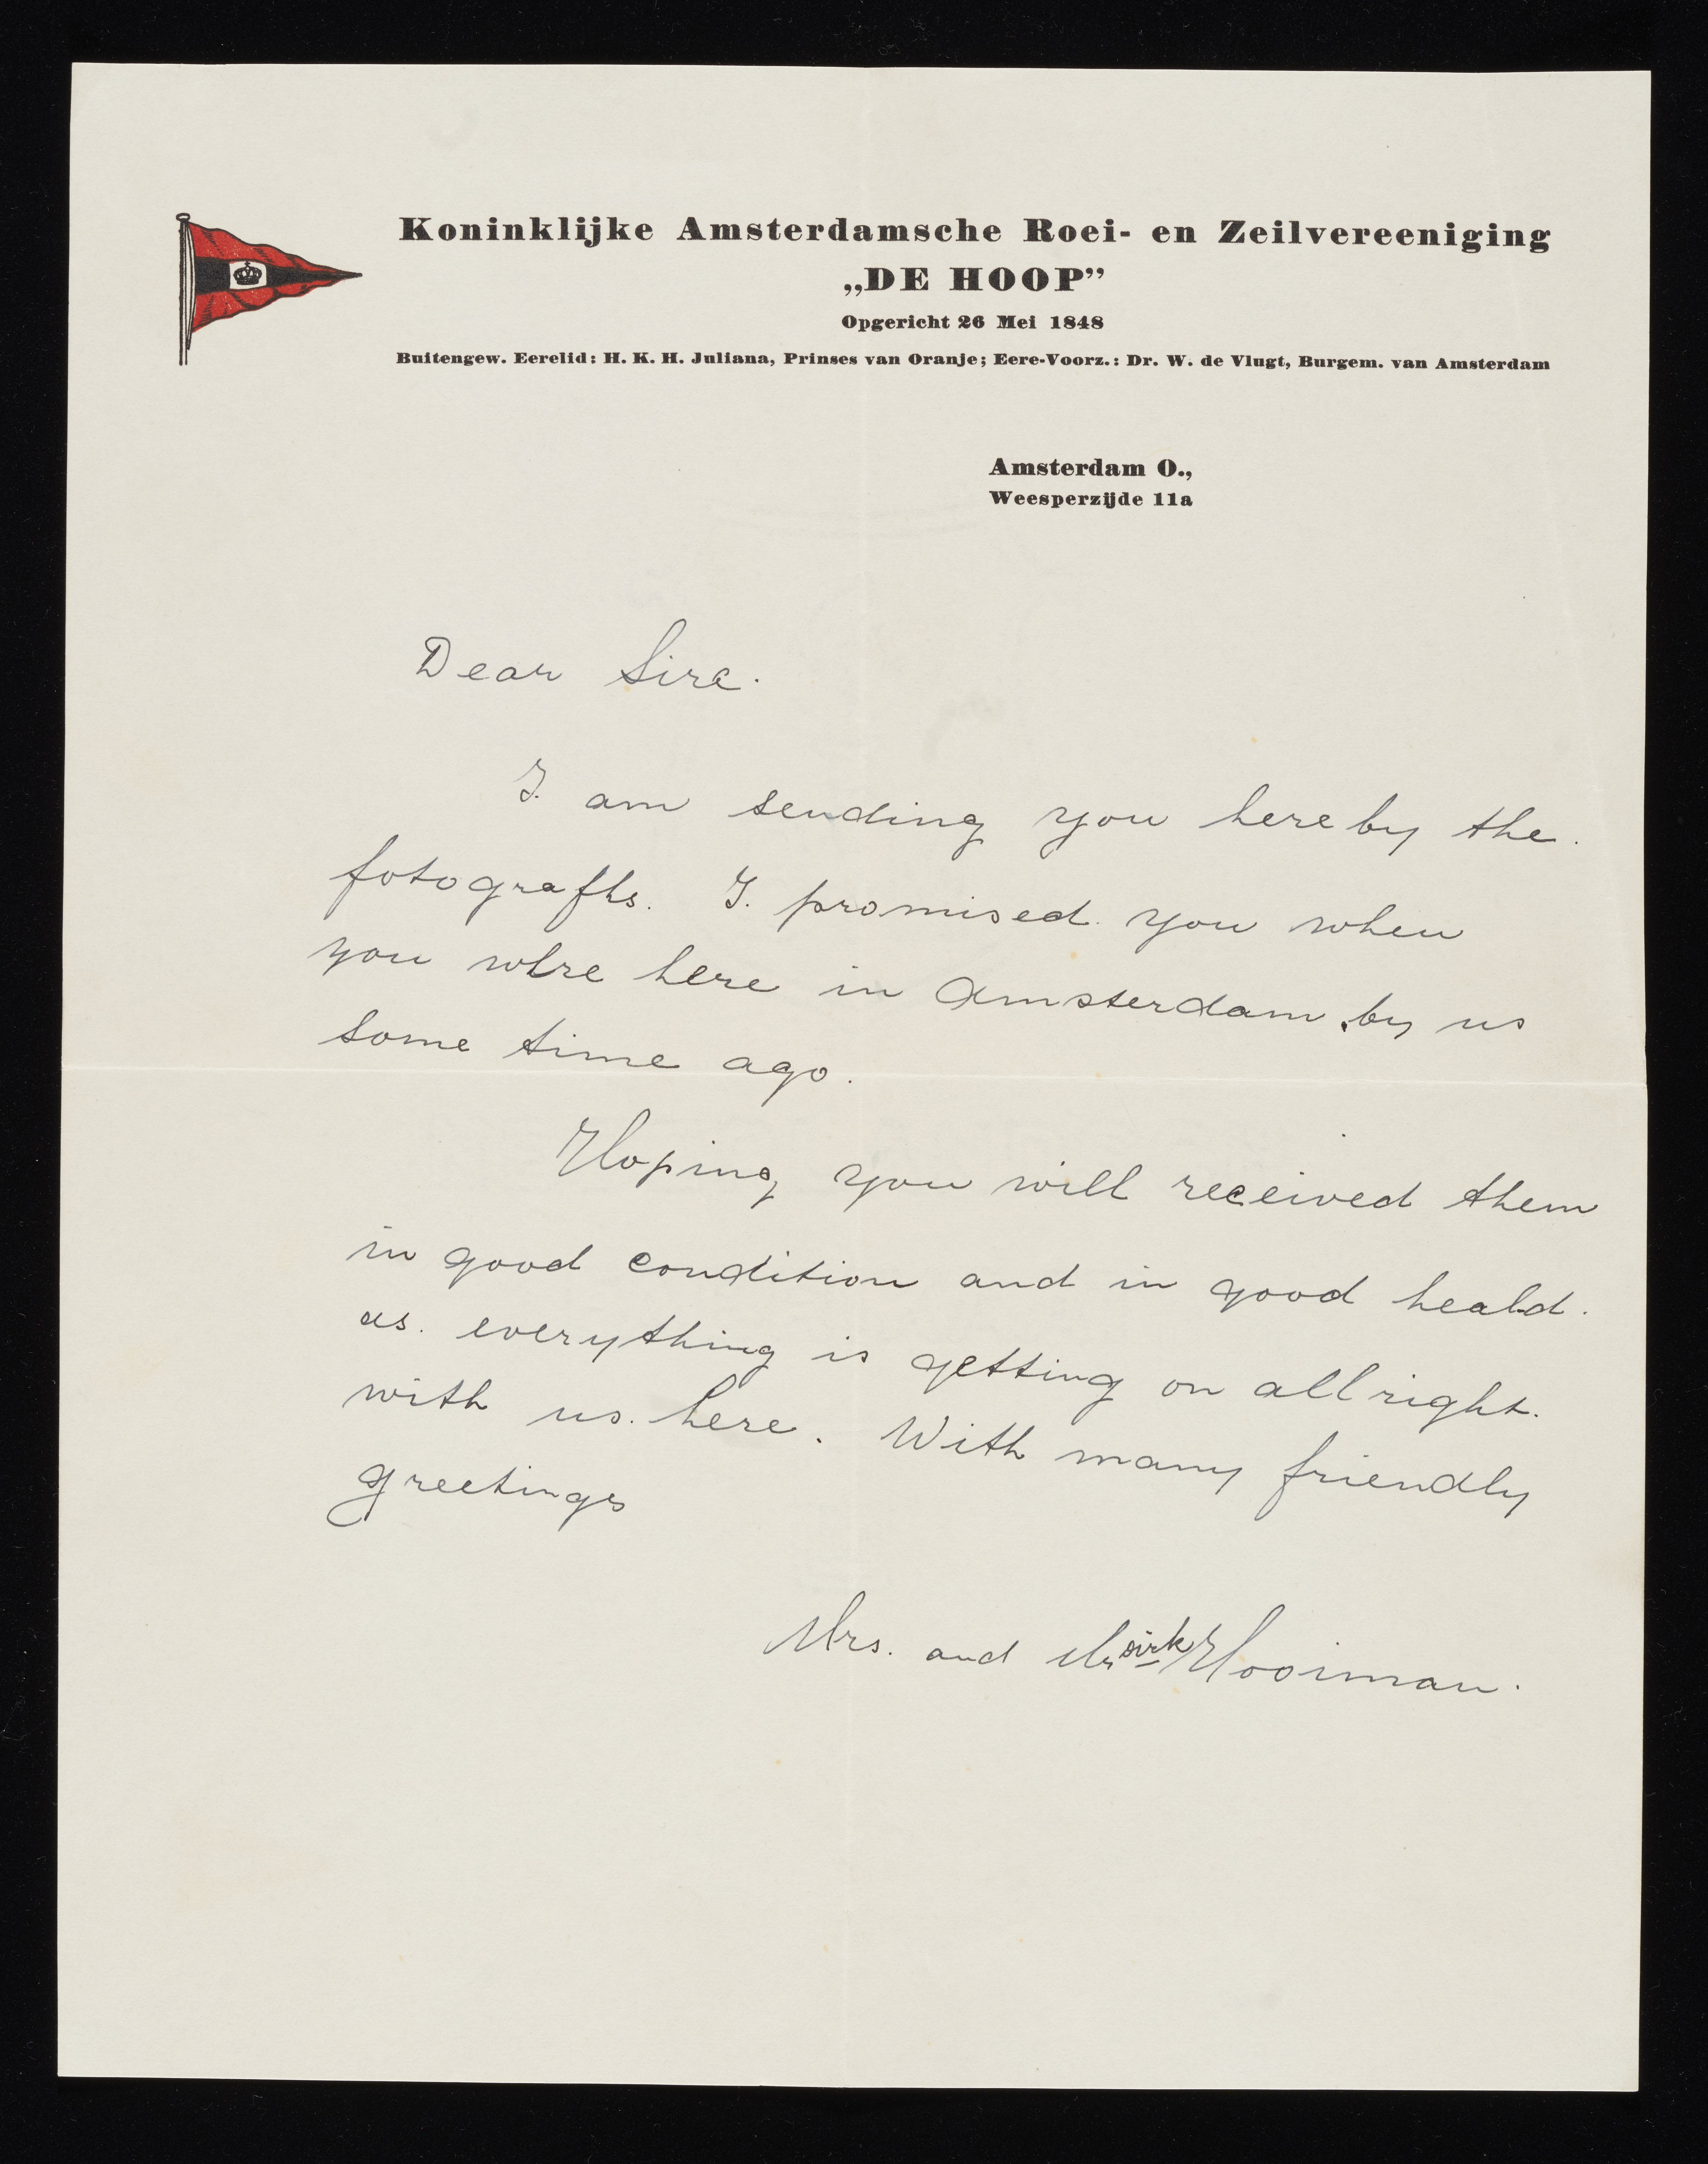 Koninklijke Amsterdamsche Roei- en Zeilvereeniging
„DE HOOP”
Opgericht 26 Mei 1848
Buitengew. Eerelid: H. K. H. Juliana, Prinses van Oranje; Eere-Voorz.: Dr. W. de Vlugt, Burgem. van Amsterdam
Amsterdam O.,
Weesperzijde 11a
Dear Sire.
I. am sending you hereby the.
fotografhs. I. promised you when
you where here in Amsterdam by us
some time ago.
Hoping you will received them
in good condition and in good heald.
as. everything is getting on allright.
with us. here. With many friendly
greetings
Mrs. and Mr Dirk Hooiman.